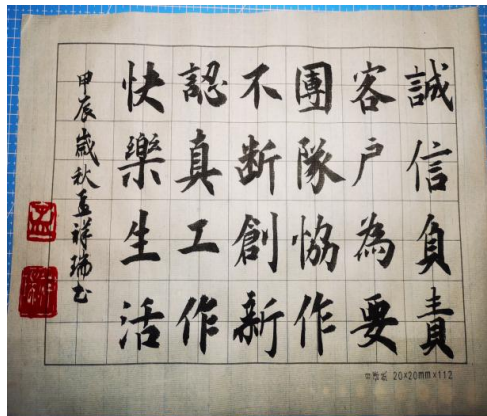 誠信負責
客户為要
團隊協作
不断創新
認真工作
快樂生活
甲辰歲秋孟祥瑞书
20×20mm×112